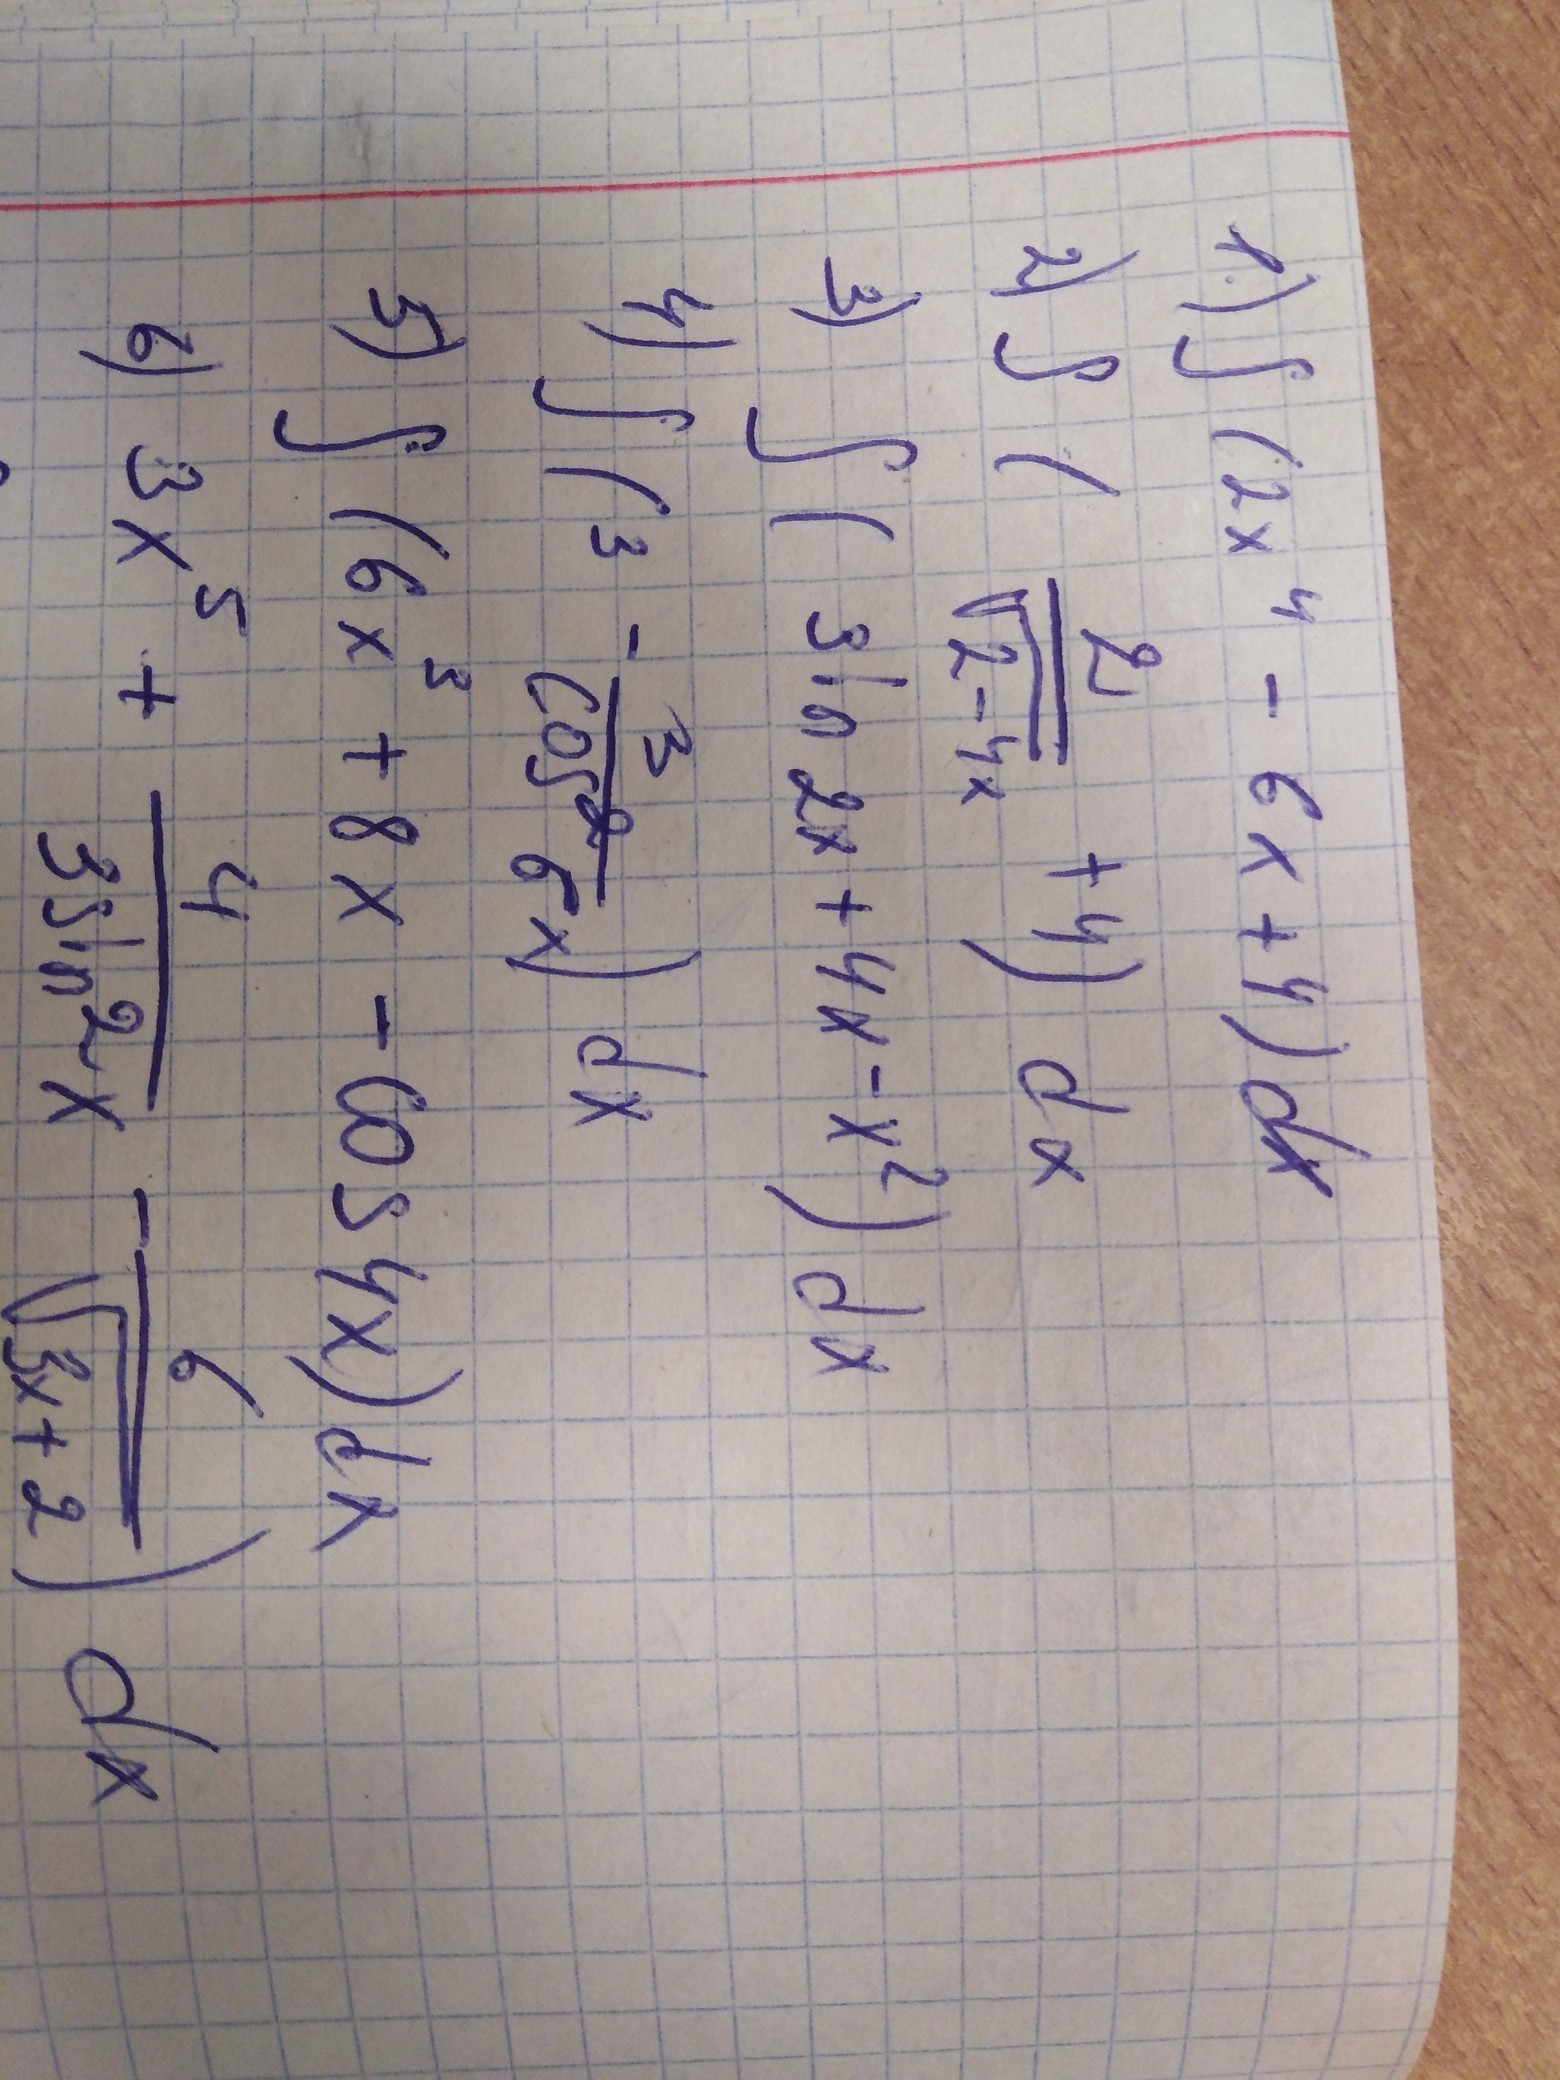 1) ∫ (2x⁴ - 6x + 4) dx
2) ∫ ( 2/√(2-4x) + 4) dx
3) ∫ ( sin 2x + 4x - x²) dx
4) ∫ (3 - 3/cos² 6x) dx
5) ∫ (6x³ + 8x - cos 4x) dx
6) 3x⁵ + 4/(3sin²x) - 6/√(3x+2) ) dx